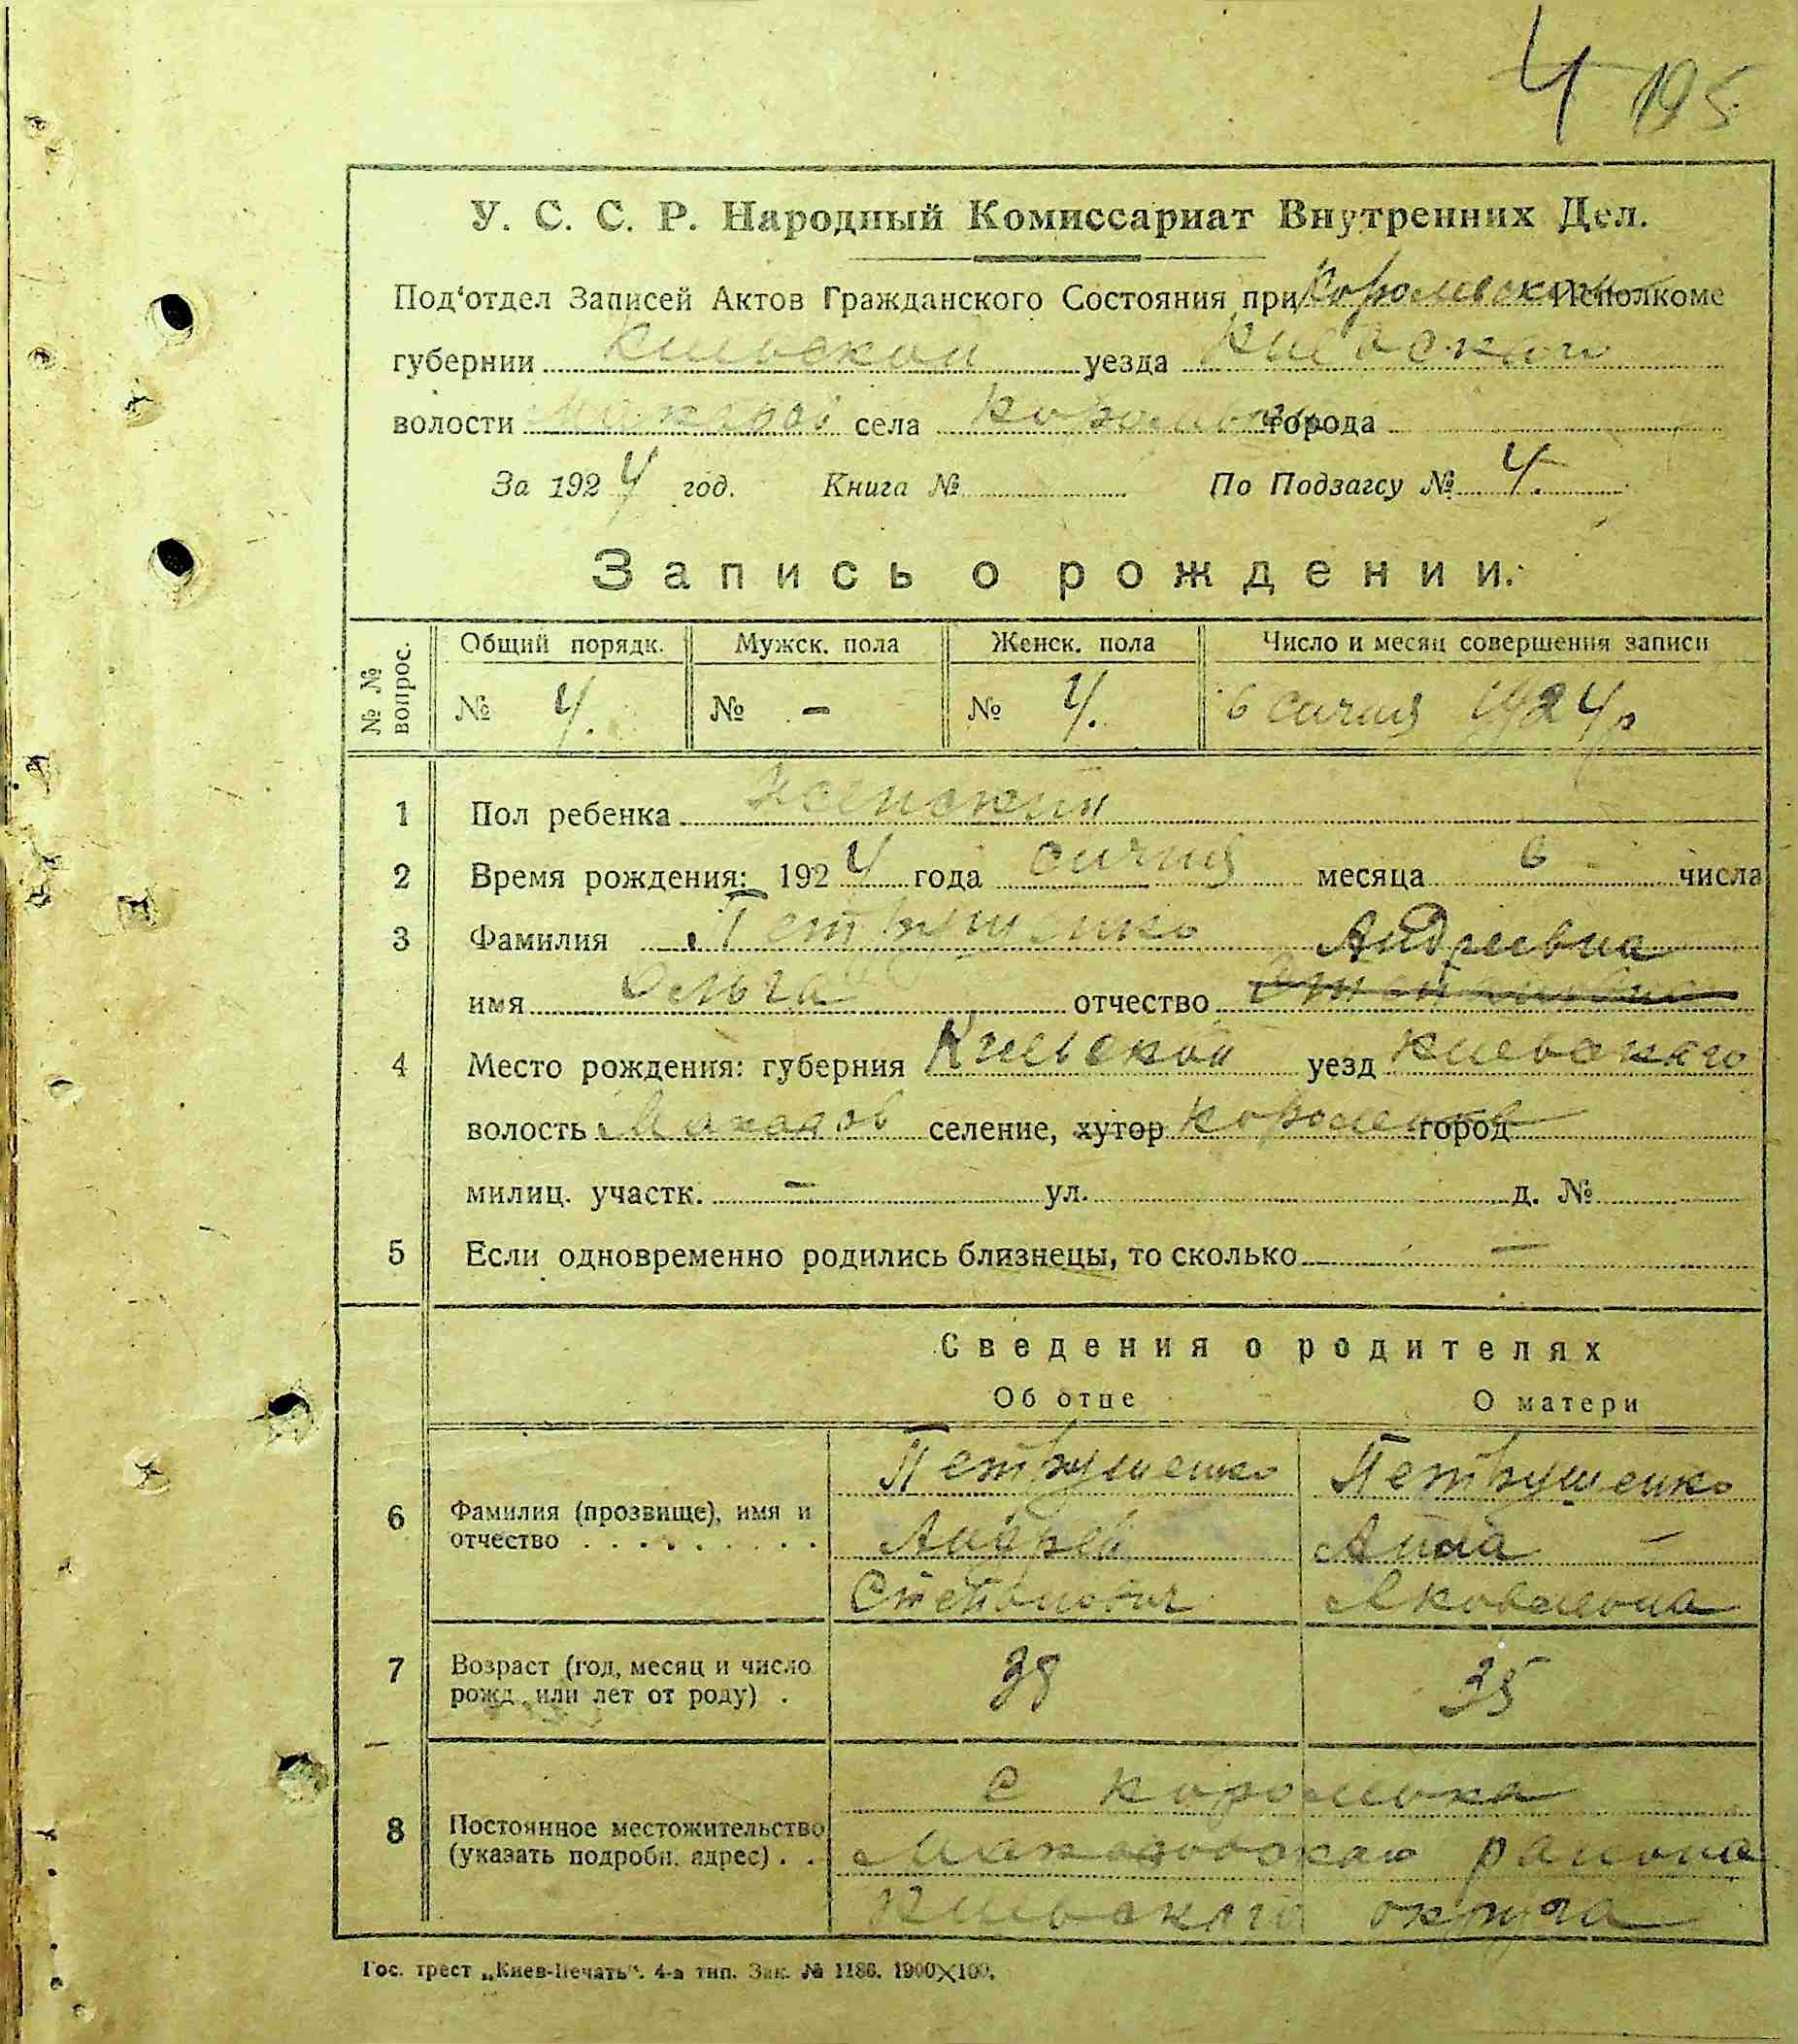 4 195
У. С. С. Р. Народный Комиссариат Внутренних Дел.
Под'отдел Записей Актов Гражданского Состояния при Королевском Исполкоме
губернии Киевской уезда Киевского
волости Макаров села Королевка города
За 1924 год. Книга № По Подзагсу № 4.
Запись о рождении.
№ № вопрос. Общий порядк. Мужск. пола Женск. пола Число и месяц совершения записи
№ 4. № - № 4. 6 сичня 1924 р
1 Пол ребенка Женский
2 Время рождения: 1924 года сичня месяца 6 числа
3 Фамилия Петрушенко Андреевна
имя Ольга отчество
4 Место рождения: губерния Киевской уезд Киевского
волость Макаров селение, хутор Королевка город
милиц. участк. - ул. д. №
5 Если одновременно родились близнецы, то сколько -
Сведения о родителях
Об отце О матери
Петрушенко Петрушенко
6 Фамилия (прозвище), имя и отчество Андрей Анна
Степанович Яковлевна
7 Возраст (год, месяц и число рожд. или лет от роду) . 38 35
с Королевка
8 Постоянное местожительство (указать подробн. адрес) . . Макаровского района
Киевского округа
Гос. трест „Киев-Печать". 4-а тип. Зак. № 1186. 1900×100.